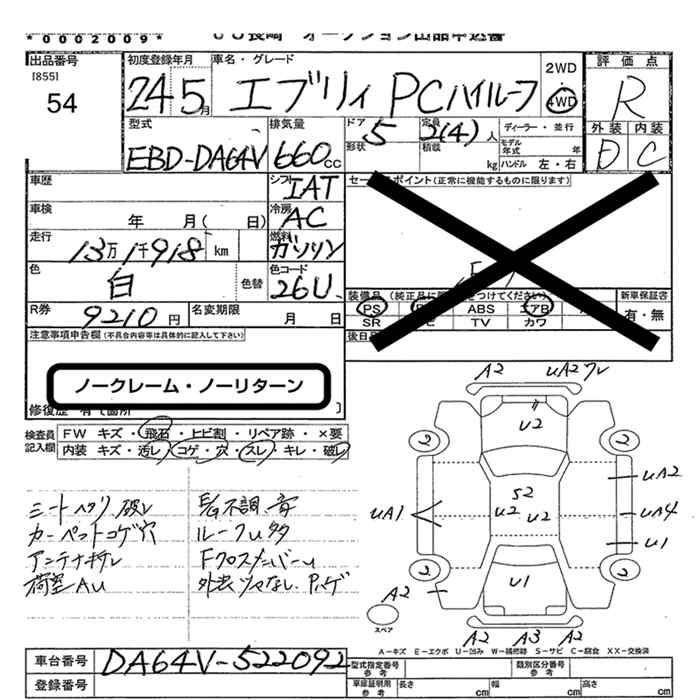 *0002009*
出品番号
[855]
54
初度登録年月
24 5月
車名・グレード
エブリィ PCハイルーフ
2WD
4WD
評価点
R
外装 内装
D C
型式
EBD-DA64V
排気量
660cc
ドア
5
形状
定員
2(4)人
積載
kg
ディーラー・並行
モデル年式 年
ハンドル 左・右
車歴
シフト
IAT
車検
年 月( 日)
冷房
AC
走行
13万1千918km
燃料
ガソリン
色
白
色替
色コード
26U
R券
9210円
名変期限
月 日
セールスポイント(正常に機能するものに限ります)
装備品
PS
ABS
エアB
SR
TV
カワ
新車保証書
有・無
注意事項申告欄(不具合内容等は具体的に記入して下さい)
ノークレーム・ノーリターン
検査員記入欄
FW キズ・飛石・ヒビ割・リペア跡・×要
内装 キズ・汚レ・コゲ・穴・スレ・キレ・破レ
シートヘタリ、破レ
カーペットコゲ穴
アンテナキレ
荷室AU
不調、音
ルーフU多
FクロスメンバーU
外装ツヤなし、Pハゲ
A2
UA2 ワレ
U2
2
2
S2
U2
U2
UA1
UA2
UA4
U1
2
2
U1
A2
A2
A3
A2
スペア
A-キズ E-エクボ U-凹み W-補修跡 S-サビ C-腐食 XX-交換済
車台番号
DA64V-522092
登録番号
型式指定番号
参考
類別区分番号
参考
車庫証明用
参考
長さ
cm
幅
cm
高さ
cm